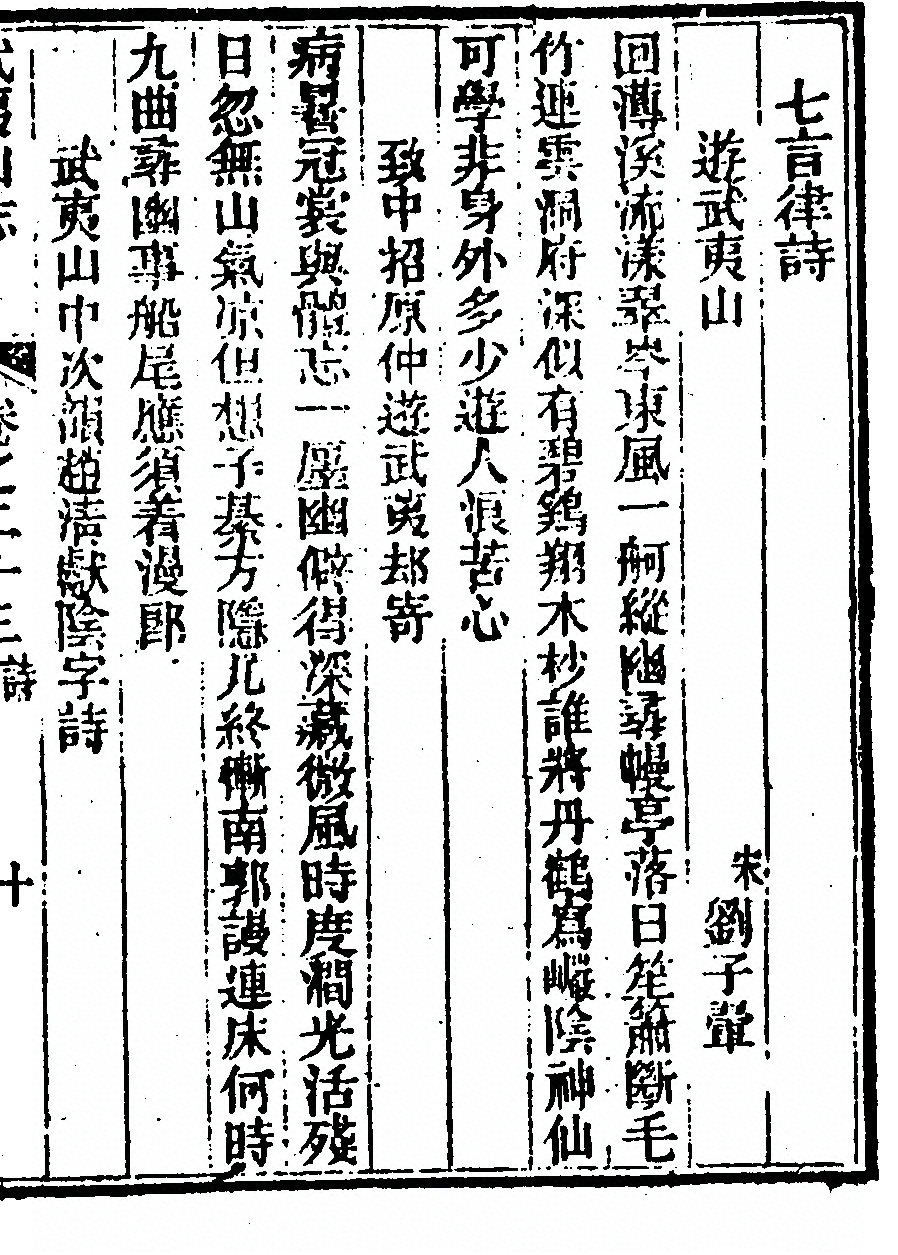 七言律詩
遊武夷山　宋劉子翬
回薄溪流漾翠岑東風一舸縱幽尋幔亭落日笙簫斷毛
竹連雲洞府深似有碧鷄翔木杪誰將丹鶴寫巖陰神仙
可學非身外多少遊人浪苦心
致中招原仲遊武夷却寄
病暑冠裳與體忘一廛幽僻得深藏微風時度澗光活殘
日忽無山氣凉但想子綦方隱几終慚南郭謾連床何時
九曲尋幽事船尾應須着漫郎
武夷山中次韻趙清獻陰字詩
武夷山志　卷之二十三詩　十